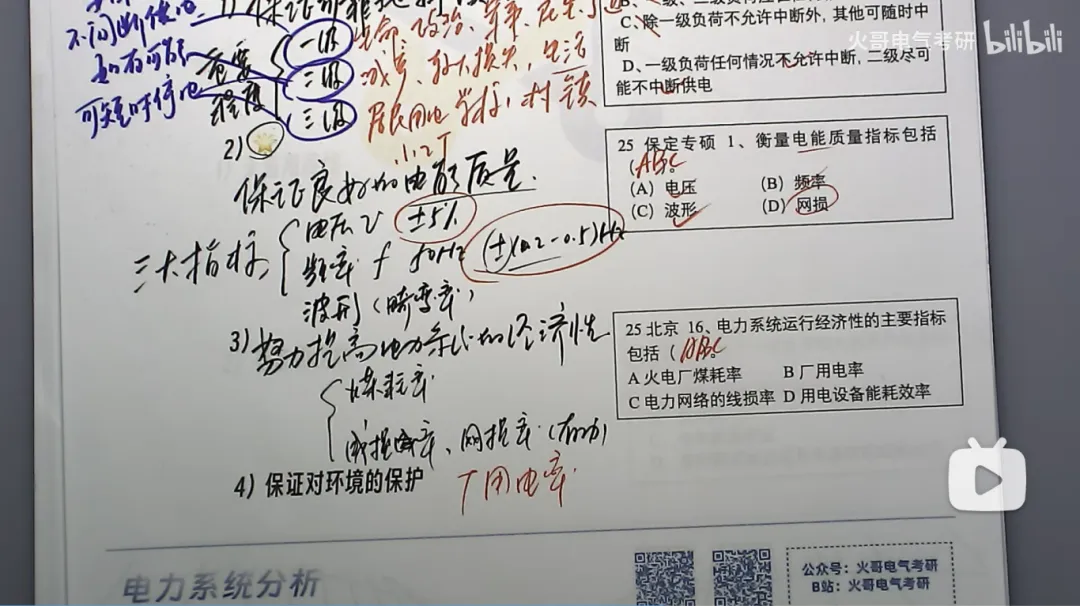 不间断供电
如有可能
可短时停电
重要程度
一级 生命、政治、军事、
二级 减产、较大损失、生活
三级 居民用电 学校、村镇
2)
保证良好的电能质量.
三大指标
电压 U ±5%
频率 f 50Hz (±)(0.2-0.5)Hz
波形 (畸变率)
3) 努力提高电力系统的经济性
煤耗率
网损率 (有功)
4) 保证对环境的保护
厂用电率
电力系统分析
C、除一级负荷不允许中断外,其他可随时中
断
D、一级负荷任何情况不允许中断,二级尽可
能不中断供电
25 保定专硕 1、衡量电能质量指标包括
(ABC
(A) 电压 (B) 频率
(C) 波形 (D) 网损
25 北京 16、电力系统运行经济性的主要指标
包括 (ABC
A 火电厂煤耗率 B 厂用电率
C 电力网络的线损率 D 用电设备能耗效率
公众号:火哥电气考研
B站:火哥电气考研
火哥电气考研 bilibili